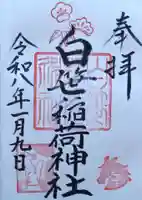 奉拝
白笹稲荷神社
令和八年一月九日